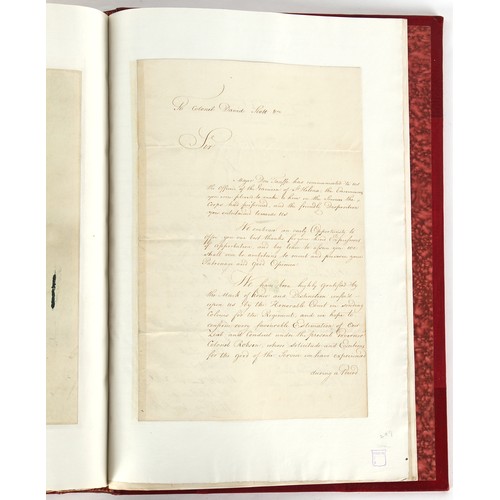 To Colonel David Scott &c
Sir
Major Den Taaffe has communicated to us
the Officers of the Garrison of St Helena, the
you were pleased to make to him on the Service the
Corps had performed, and the friendly Disposition
you entertained towards us
We embrace an early Opportunity to
offer you our best thanks for your kind Expressions
of approbation, and beg leave to assure you we
shall ever be ambitious to merit and preserve your
Patronage and Good Opinion
We have been highly gratified by
the Mark of Honor and Distinction
upon us by the Honorable Court in sending
Colours for the Regiment, and we hope to
very favourable Estimation of Our
Zeal and Conduct under the present Governor
Colonel Robson whose solicitude and
for the good of the Service we have experienced
during a Period